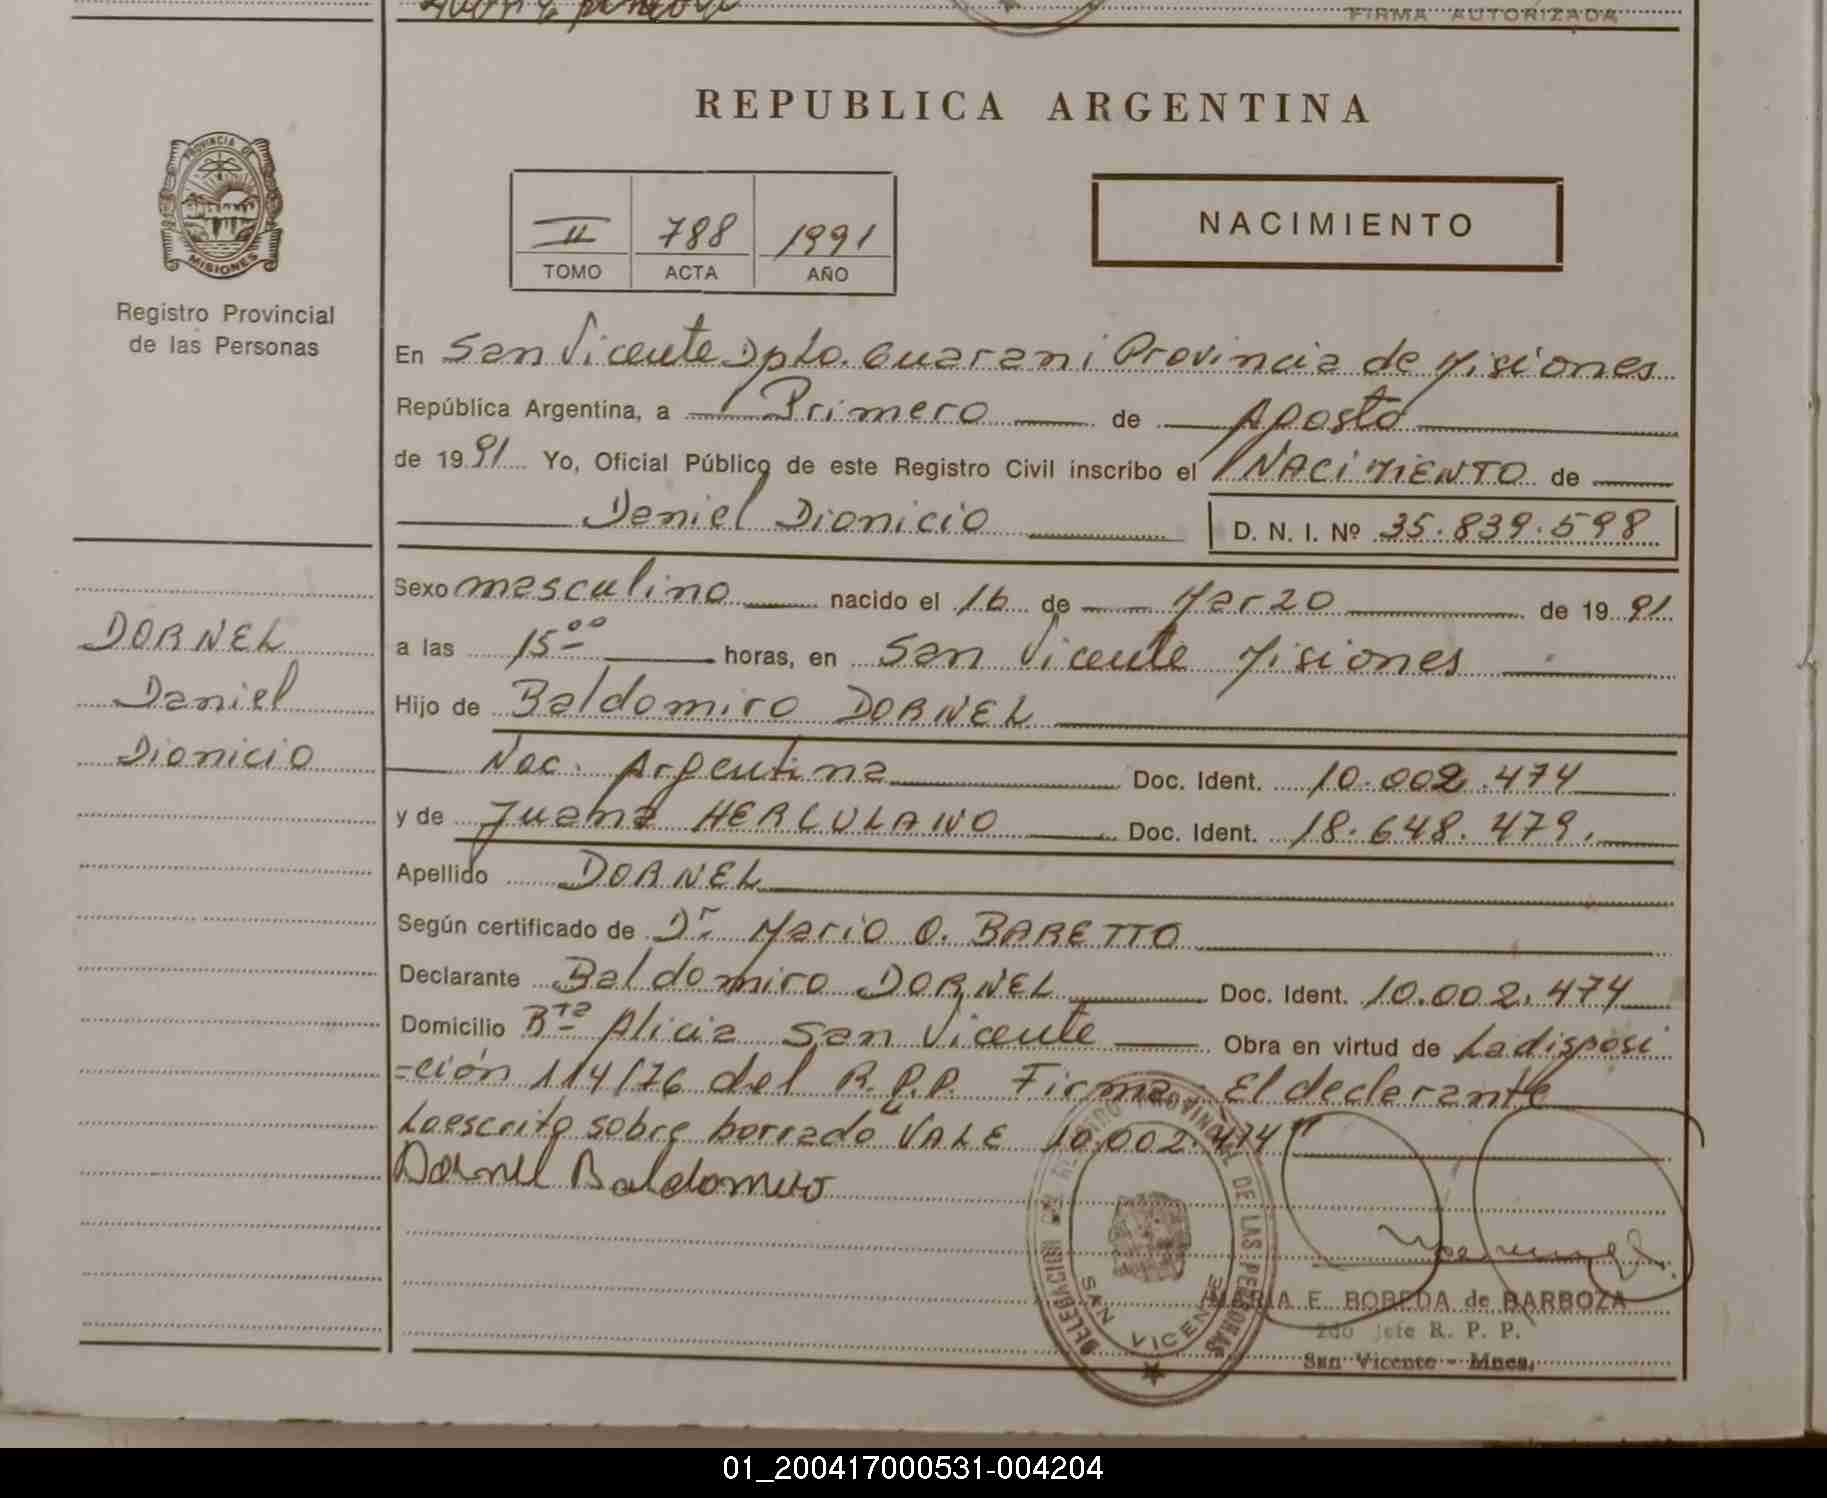 FIRMA AUTORIZADA
REPUBLICA ARGENTINA
PROVINCIA DE
MISIONES
Registro Provincial
de las Personas
II 788 1991
TOMO ACTA AÑO
NACIMIENTO
En San Vicente Dpto. Guarani Provincia de Misiones
República Argentina, a Primero de Agosto
de 1991 Yo, Oficial Público de este Registro Civil inscribo el NACIMIENTO de
Daniel Dionicio D. N. I. Nº 35.839.598
Sexo masculino nacido el 16 de Marzo de 1991
a las 15 00 horas, en San Vicente Misiones
Hijo de Baldomiro DORNEL
Nac. Argentina Doc. Ident. 10.002.474
y de Juana HERCULANO Doc. Ident. 18.648.479.
Apellido DORNEL
Según certificado de Dr Mario O. BARETTO
Declarante Baldomiro DORNEL Doc. Ident. 10.002.474
Domicilio Bta Alicia San Vicente Obra en virtud de La disposi
=ción 114/76 del R.P.P. Firma: El declarante
Lo escrito sobre borrado "VALE 10.002.474"
Dornel Baldomiro
DORNEL
Daniel
Dionicio
DELEGACION DEL REGISTRO PROVINCIAL DE LAS PERSONAS
SAN VICENTE
MARIA E. BOBEDA de BARBOZA
2do Jefe R. P. P.
San Vicente - Mnes.
01_200417000531-004204